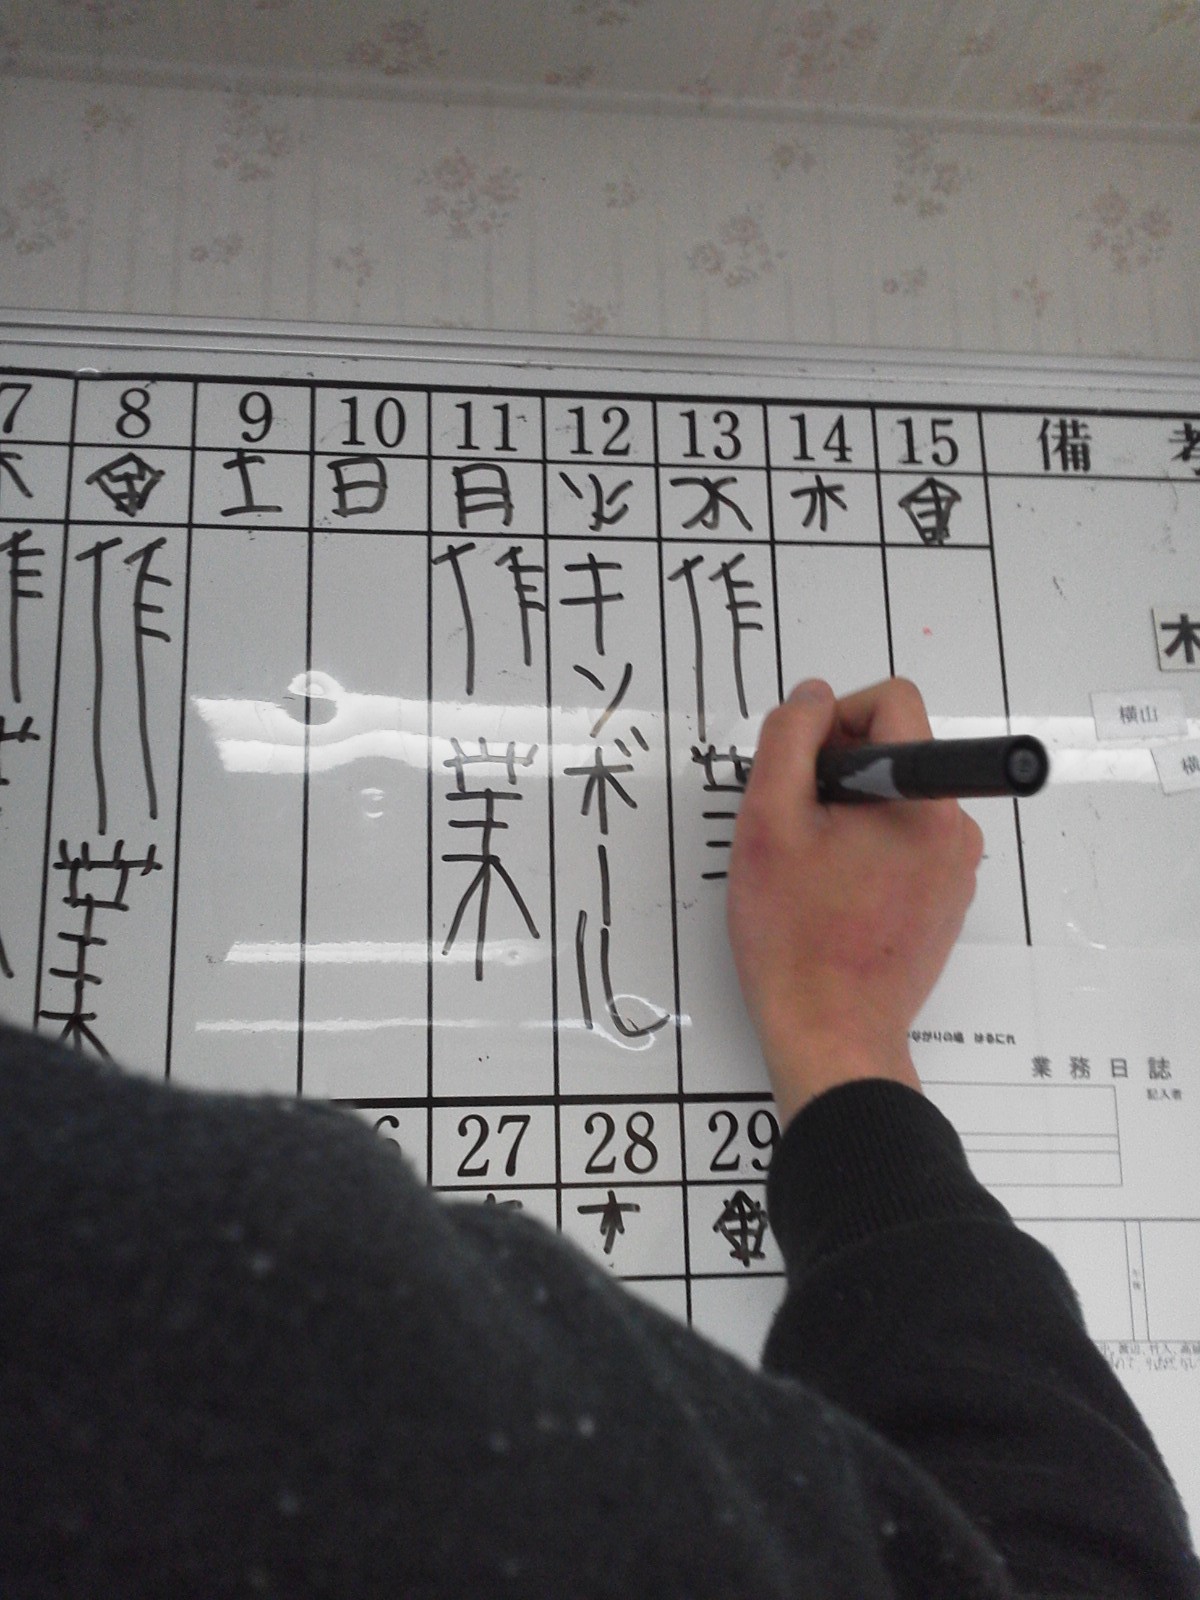 7 8 9 10 11 12 13 14 15 備考
木 金 土 日 月 火 水 木 金
作業
作業
作業
キンボール
作業
木
横山
横
つながりの場 はるにれ
業務日誌
記入者
27 28 29
木 金
午後